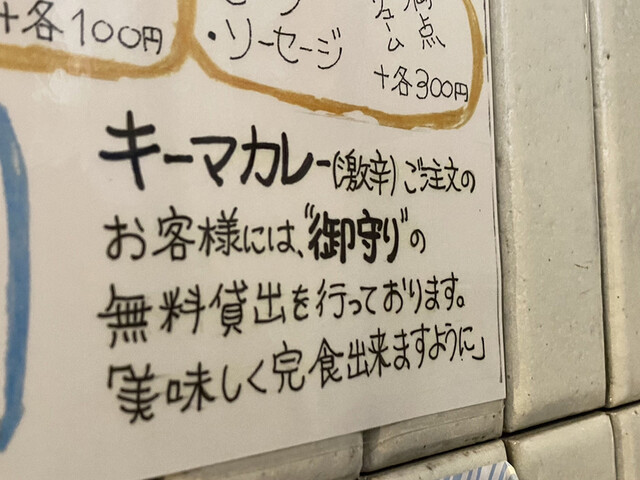 +各100円
・ソーセージ
満点
リューム
+各300円
キーマカレー(激辛)ご注文の
お客様には、"御守り"の
無料貸出を行っております。
「美味しく完食出来ますように」